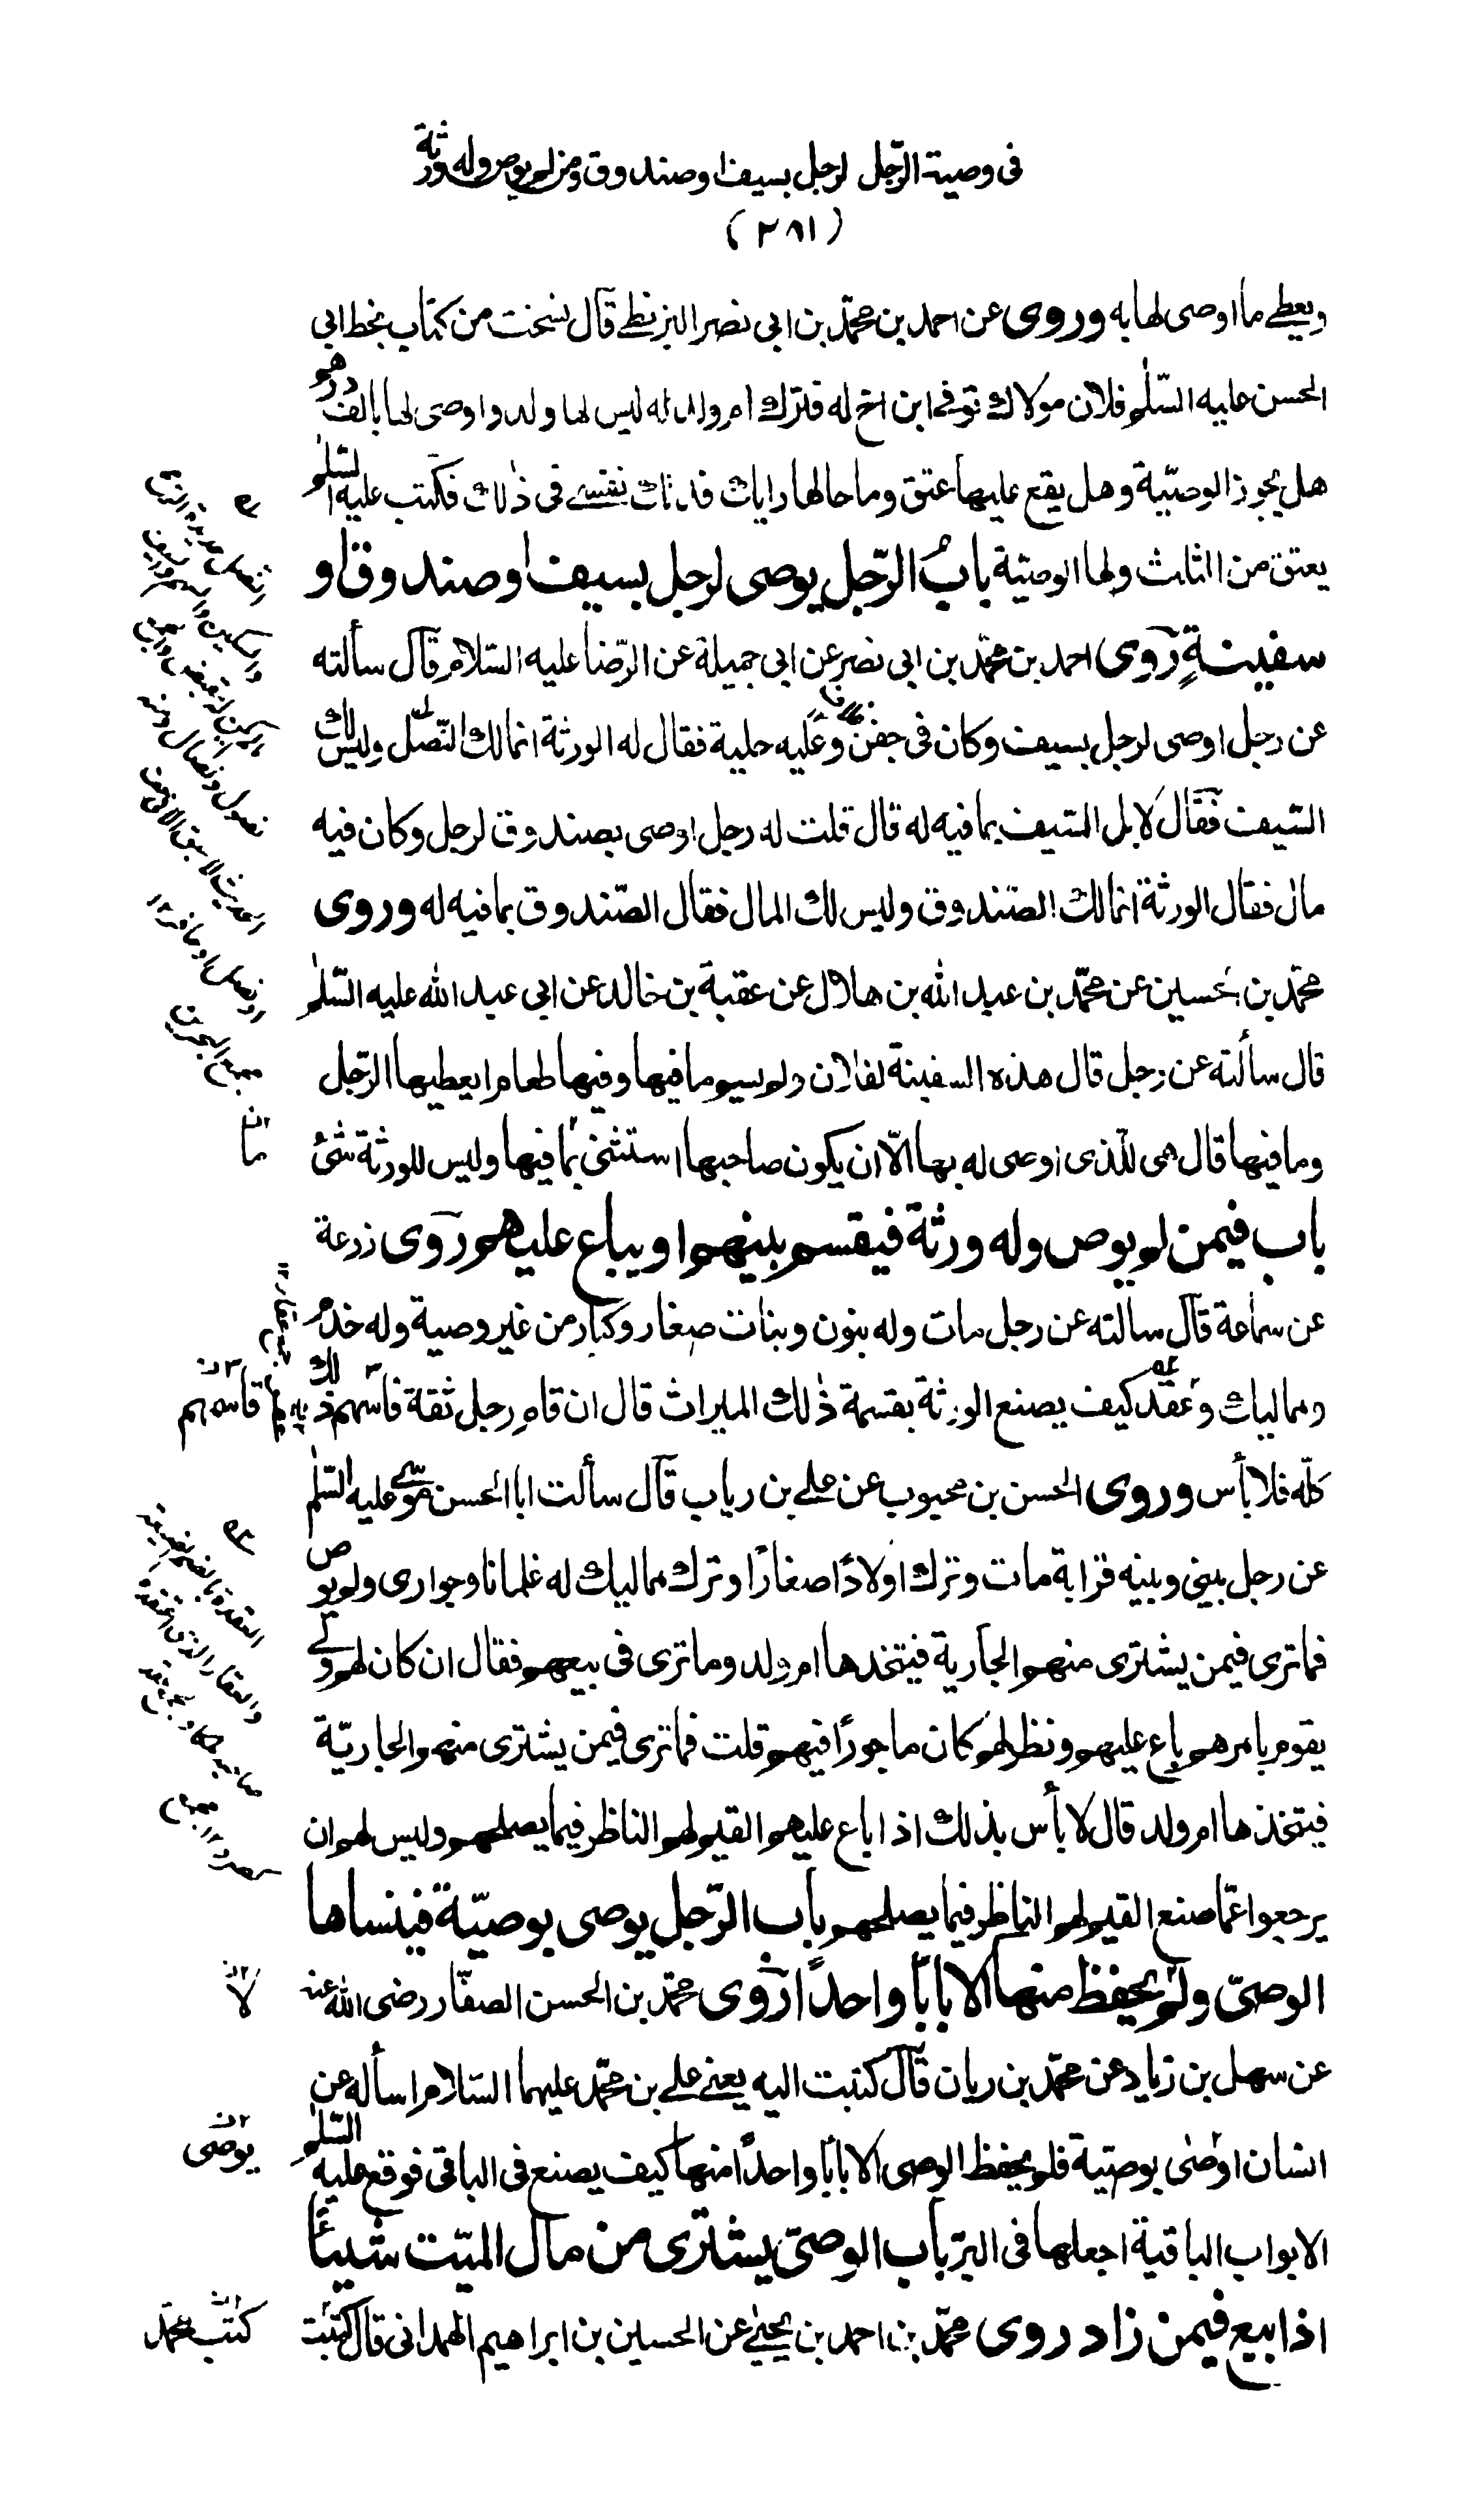 فى وصية الرّجل لرجل بسيف او صندوق ومن لم يوص وله ورثة
(٢٨١)
ويعطى ما اوصى لها به وروى عن احمد بن محمّد بن ابى نصر البزنطى قال نسخت من كتاب بخط ابى
الحسن عليه السّلم فلان مولاك توفى ابن اخ له فترك ام ولد له ليس لها ولد واوصى لها بالف درهم
هل يجوز الوصيّة وهل يقع عليها عتق وما حالها رايك فدتك نفسى فى ذلك فكتب عليه السّلم
يعتق من الثلث ولها الوصيّة باب الرّجل يوصى لرجل بسيف او صندوق او
سفينةٍ روى احمد بن محمّد بن ابى نصر عن ابى جميلة عن الرّضا عليه السّلام قال سألته
عن رجل اوصى لرجل بسيف وكان فى جفن وعليه حلية فقال له الورثة انما لك النّصل وليس لك
السّيف فقال لا بل السّيف بما فيه له قال قلت له رجل اوصى بصندوق لرجل وكان فيه
مال فقال الورثة انما لك الصّندوق وليس لك المال فقال الصّندوق بما فيه له وروى
محمّد بن الحسين عن محمّد بن عبد الله بن هلال عن عقبة بن خالد عن ابى عبد الله عليه السّلم
قال سألته عن رجل قال هذه السفينة لفلان ولم يسم ما فيها وفيها طعام ايعطيها الرّجل
وما فيها قال هى للّذى اوصى له بها الّا ان يكون صاحبها استثنى بما فيها وليس للورثة شئ
باب فيمن لم يوص وله ورثة فيقسم بينهم او يباع عليهم روى زرعة
عن سماعة قال سالته عن رجل مات وله بنون وبنات صغار وكبار من غير وصية وله خدم
ومماليك وعقد كيف يصنع الورثة بقسمة ذلك الميراث قال ان قام رجل ثقة فاسمهم ذلك
قاسمهم
كلّه فلا بأس وروى الحسن بن محبوب عن على بن رياب قال سألت ابا الحسن موسى عليه السّلم
عن رجل بينى وبينه قرابة مات وترك اولادًا صغارًا وترك مماليك له غلمانا وجوارى ولم يوص
فما ترى فيمن يشترى منهم الجارية فيتخذها ام ولد وما ترى فى بيعهم فقال ان كان لهم ولى
يقوم بامرهم باع عليهم ونظر لهم كان ماجورًا فيهم قلت فما ترى فيمن يشترى منهم الجاريّة
فيتخذها ام ولد قال لا بأس بذلك اذا باع عليهم القيم لهم الناظر فيما يصلحهم وليس لهم ان
يرجعوا عمّا صنع القيم لهم الناظر فيما يصلحهم باب الرّجل يوصى بوصيّة فينساها
الوصىّ ولم يحفظ منها الا بابًا واحدًا روى محمّد بن الحسن الصفّار رضى الله عنه
عن سهل بن زياد عن محمّد بن ريان قال كتبت اليه يعنى على بن محمّد عليهما السّلام اسأله عن
انسان اوصى بوصيّة فلم يحفظ الوصى الا بابًا واحدًا منها كيف يصنع فى الباقى فوقع عليه السّلم
يوصى
الابواب الباقية اجعلها فى البرّ باب الوصىّ يشترى من مال الميّت شيئًا
اذا بيع فيمن زاد روى محمّد بن احمد بن يحيى عن الحسين بن ابراهيم الهمدانى قال كتبت
كتب محمّد